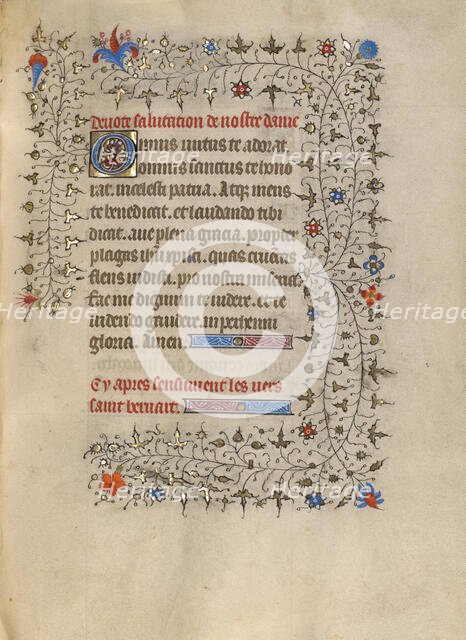 Devote salutation de nostre dame
Omnis virtus te adorat.
omnis sanctus te hono
rat. in celesti patria. Atque mens
te benedicat. et laudando tibi
dicat. ave plena gracia. propter
plagas quas
flens vidisti. pro nostra
fac me dignum te videre. et te
videndo gaudere. in perhenni
gloria. Amen.
Cy apres sensuivent les vers
saint bernart.
Heritage
Heritage
Heritage
Heritage
Heritage
Heritage
Heritage